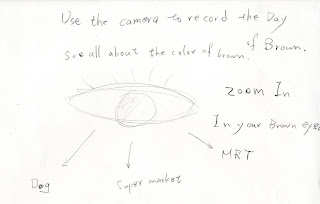 Use the camera to record the Day
of Brown.
See all about the color of brown.
Zoom In
In your Brown eyes
MRT
Super market
Dog